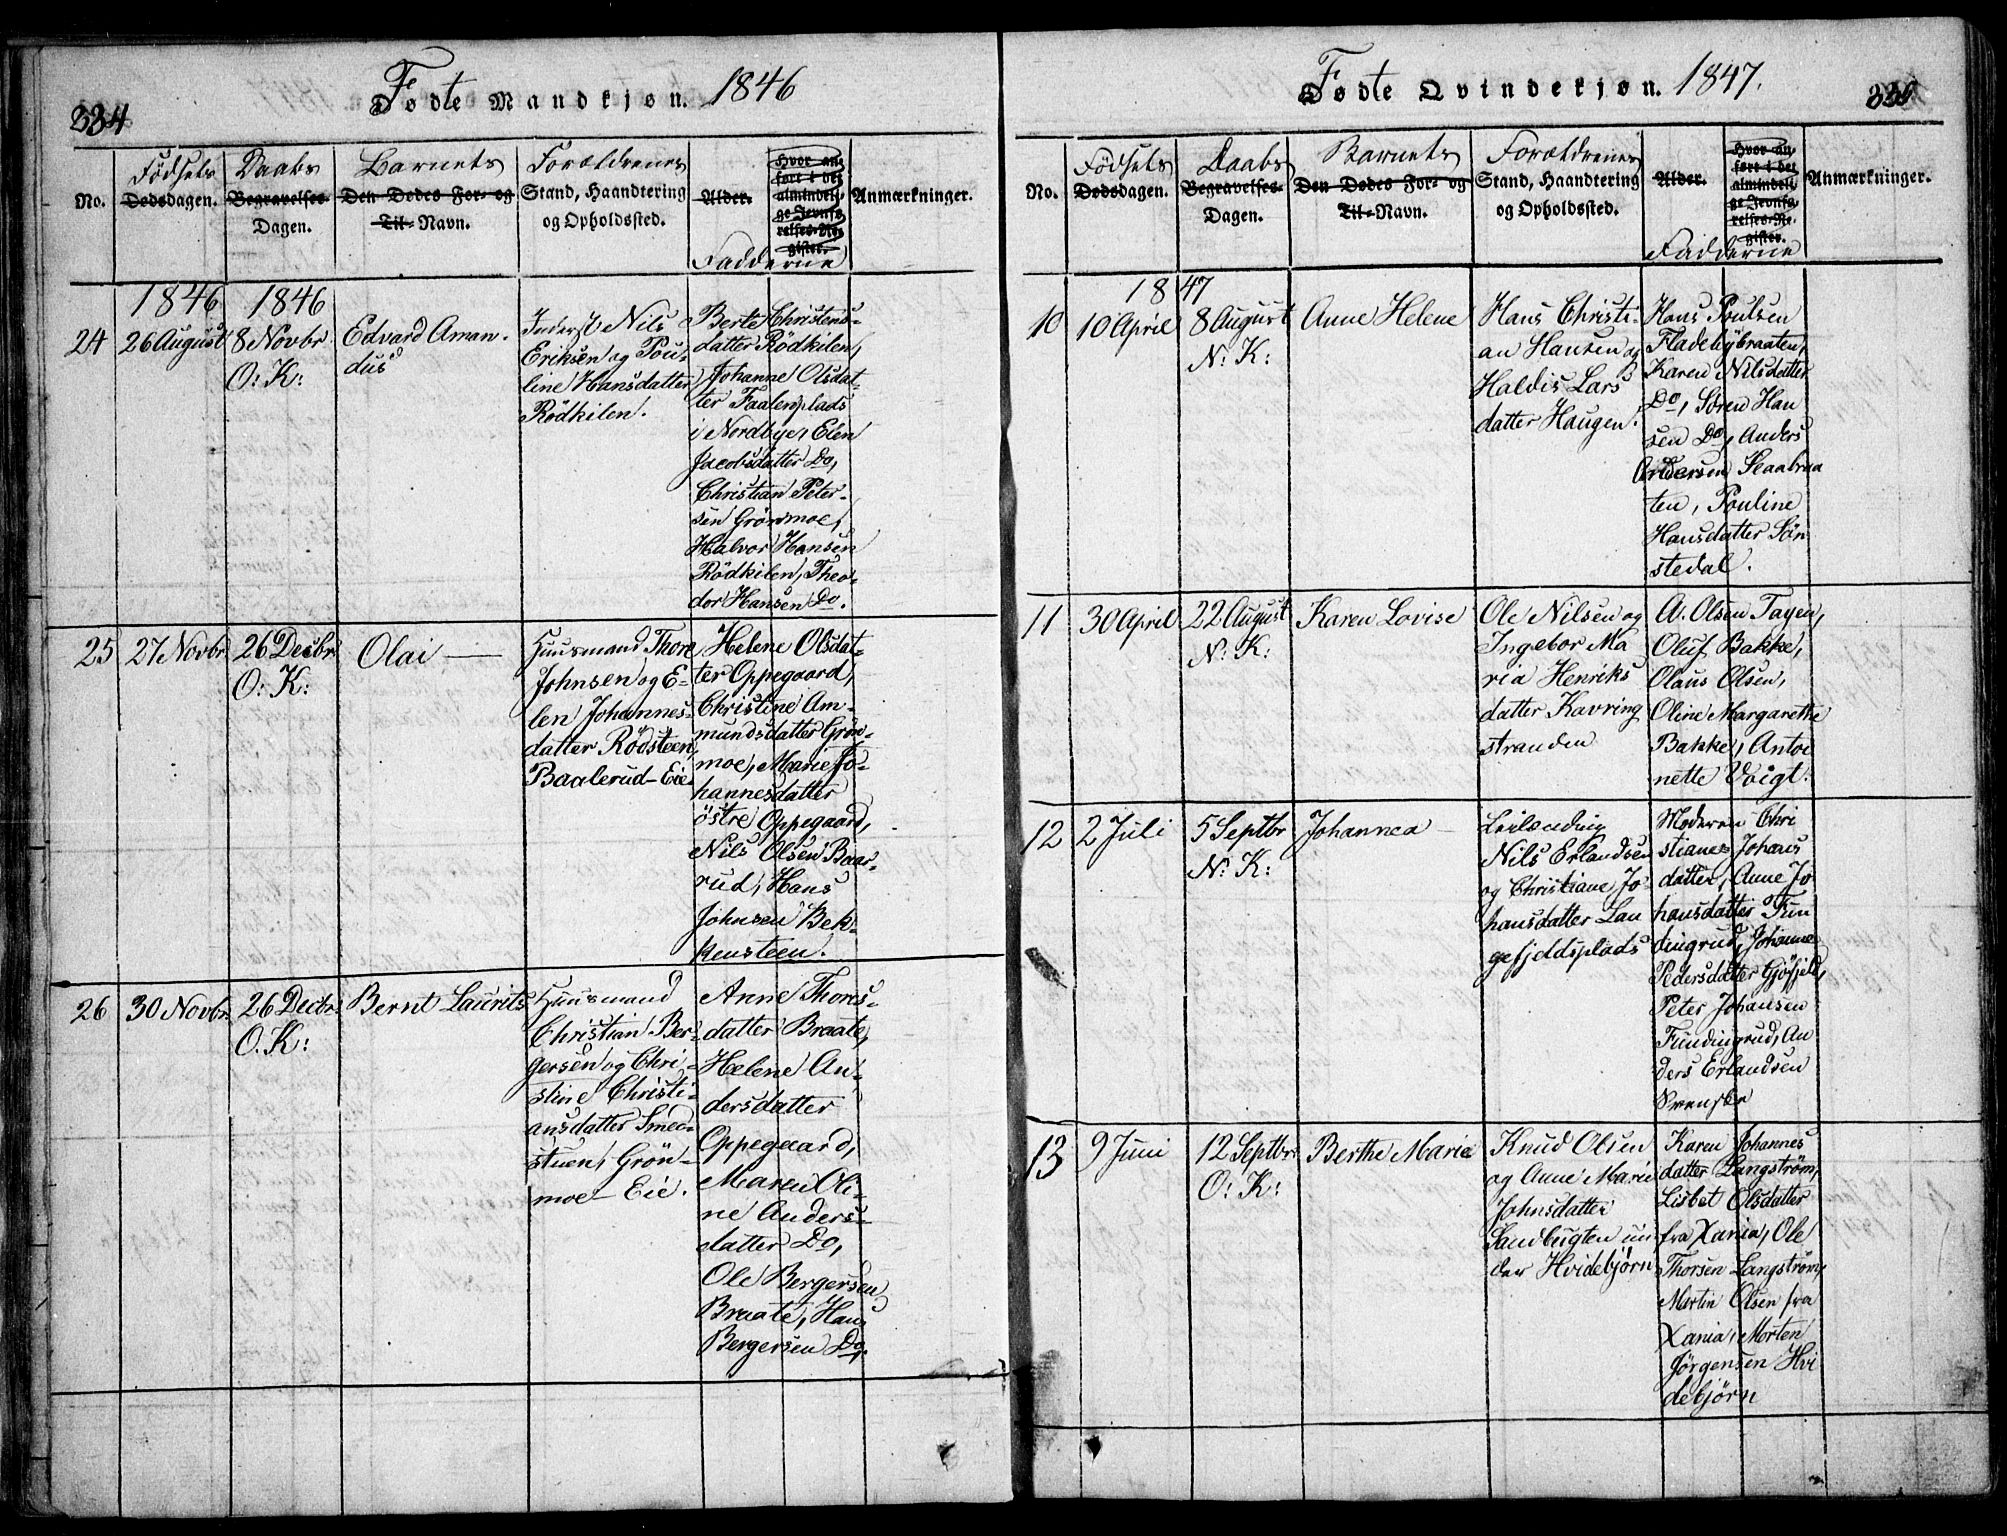 334
Fødte Mandkjøn. 1846
No.
Fødsels
Dødsdagen.
Daabs
Begravelses-
Dagen.
Barnets
Den Dødes For- og
Til-Navn.
Forældrenes
Stand, Haandtering
og Opholdssted.
Alder.
Hvor an-
ført i det
almindeli-
ge Jevnfø-
relses-Re-
gister.
Fadderne
Anmærkninger.
1846 1846
24
26 August
8 Novbr
O: K:
Edvard Aman-
dus
Inderst Nils
Eriksen og Pou-
line Hansdatter
Rödkilen.
Berte Christens-
datter Rödkilen,
Johanne Olsdat-
ter Faalenplads
i Nordbye, Elen
Jacobsdatter Do,
Christian Peter-
sen Grönmoe,
Halvor Hansen
Rödkilen, Theo-
dor Hansen Do.
25
27 Novbr
26 Decbr
O: K:
Olai
Huusmand Thore
Johnsen og E-
len Johannes-
datter Rødsteen,
Baalerud-Eie
Helene Olsdat-
ter Oppegaard,
Christine Am-
mundsdatter Grön-
moe, Marie Jo-
hannesdatter
östre Oppegaard,
Nils Olsen Baar-
rud, Hans
Johnsen Bek-
kensteen.
26
30 Novbr
26 Decbr
O. K:
Bernt Laurits
Huusmand
Christian Ber-
gersen og Chri-
stine Christi-
ansdatter Smed-
stuen, Grön-
moe-Eie.
Anne Thores-
datter Braate,
Helene An-
dersdatter
Oppegaard,
Maren Oli-
ne Anders-
datter Do,
Ole Bergersen
Braate, Hans
Bergersen Do.
335
Fødte Qvindekjøn. 1847.
No.
Fødsels
Dødsdagen.
Daabs
Begravelses-
Dagen.
Barnets
Den Dødes For- og
Til-Navn.
Forældrenes
Stand, Haandtering
og Opholdssted.
Alder.
Hvor an-
ført i det
almindeli-
ge Jevnfø-
relses-Re-
gister.
Fadderne
Anmærkninger.
1847
10
10 April
8 August
N: K:
Anne Helene
Hans Christi-
an Hansen og
Haldis Lars
datter Haugen.
Hans Poulsen
Fladebybraaten,
Karen Nilsdatter
Do, Søren Han
sen Do, Anders
Andersen Skaabraa
ten, Pouline
Hansdatter Sön
stedal.
11
30 April
22 August
N: K:
Karen Lovise
Ole Nilsen og
Ingebor Ma
ria Henriks
datter Kavring
stranden
A. Olsen Tøyen,
Oluf Bakke,
Olaus Olsen,
Oline Margarethe
Bakke, Antoi
nette Voigt.
12
2 Juli
5 Septbr
N: K:
Johannea
Leilænding
Nils Erlandsen
og Christiane Jo-
hansdatter Lan
gefjeldsplads
Moderen Chri
stiane Johans
datter, Anne Jo
hansdatter Fun
dingrud, Johanne
Pedersdatter Gjøfjeld,
Peter Johansen
Fundingrud, An
ders Erlandsen
Svenske
13
9 Juni
12 Septbr
O: K:
Berthe Marie
Knud Olsen
og Anne Marie
Johnsdatter
Sandbugten un
der Hvidebjörn
Karen Johannes
datter Langström,
Lisbet Olsdatter
fra Xania, Ole
Thorsen Langström,
Martin Olsen fra
Xania, Morten
Jörgensen Hvi
debjörn